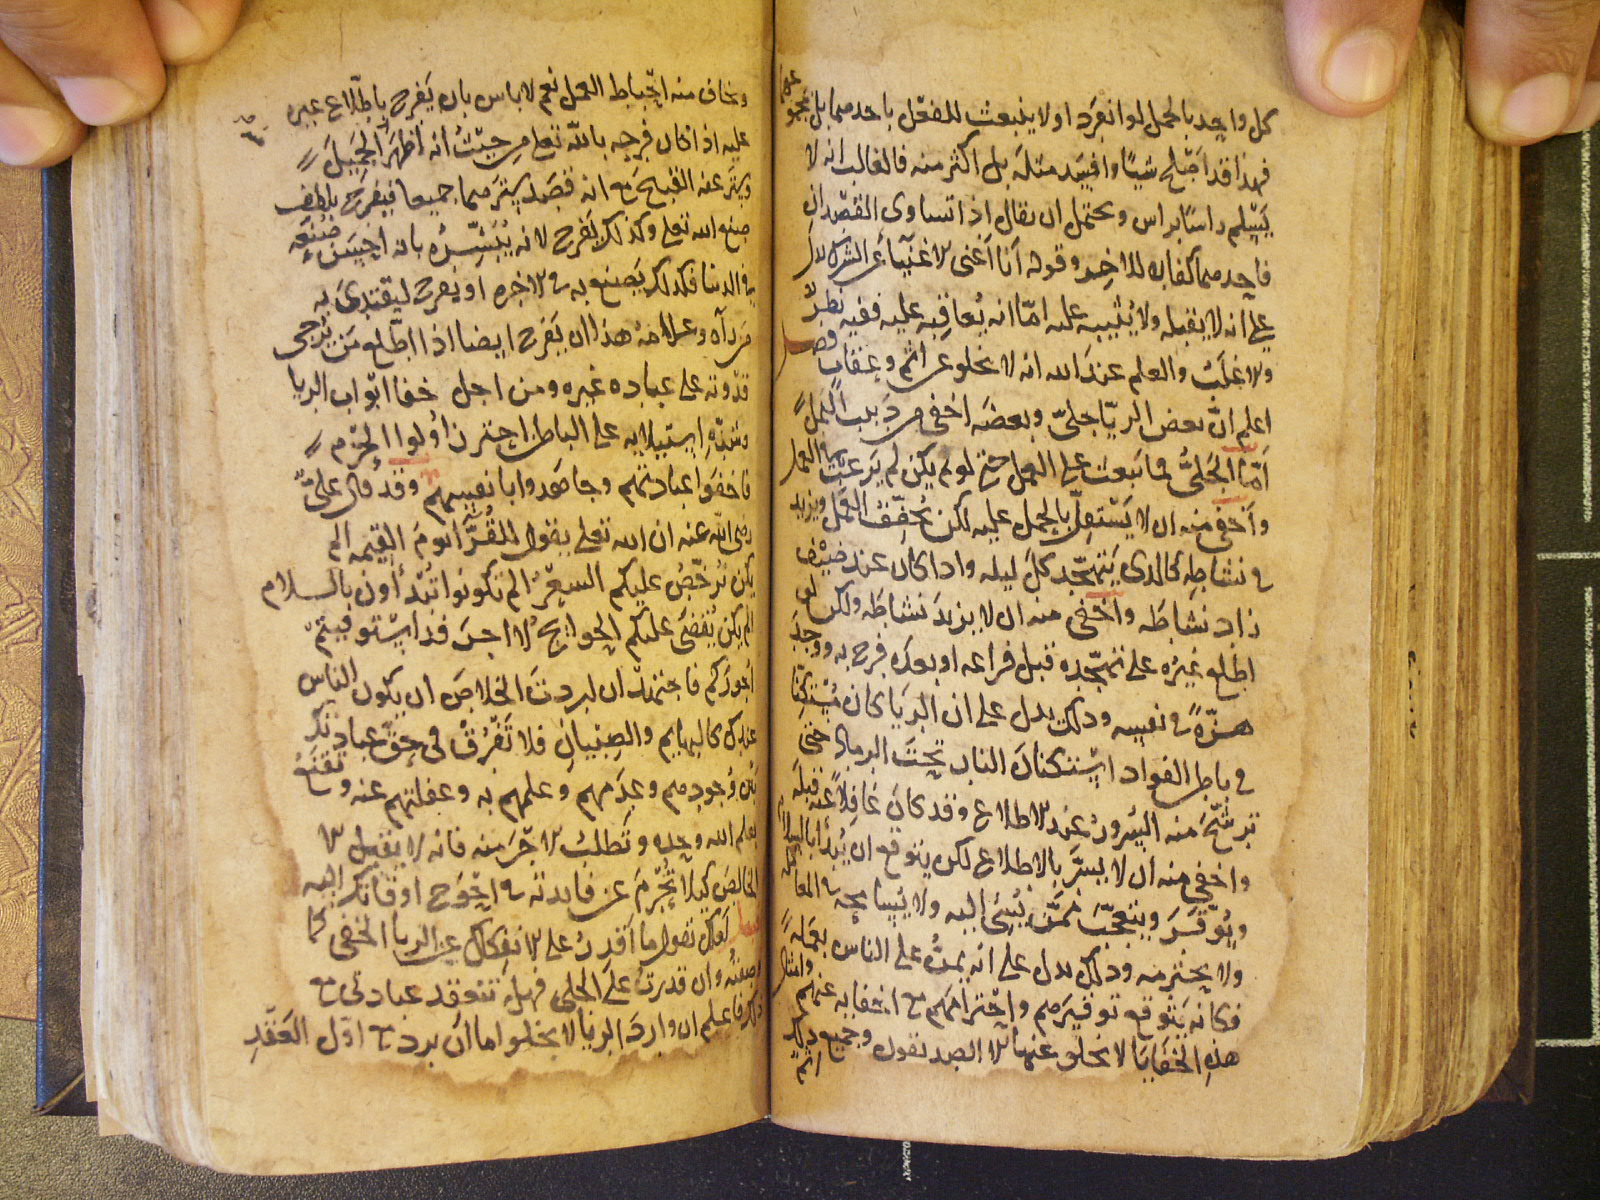 كل واحد بالحمل لو انفرد او لا ينبعث للفعل باحدهما بل بمجموعهما
فهذا قد اصلح شيا وافسد مثله بل اكثر منه فالغالب انه لا
يسلم راسا براس ويحتمل ان يقال اذا تساوى القصدان
فاحدهما كفاره للاخر وقوله انا اغنى الاغنيا عن الشرك لا يدل
على انه لا يقبله ولا يثيبه عليه اما انه يعاقبه عليه ففيه نظر
ولا غلب والعلم عند الله انه لا يخلو عن اثم وعقاب فصل
اعلم ان بعض الريا جلي وبعضه اخفى من دبيب النمل
اما الجلي فما تبعث على العمل حتى لو لم يكن لم يرغب في العمل
واخفى منه ان لا يستقل بالحمل عليه لكن يخفف العمل ويزيد
في نشاطه كالذي يتهجد كل ليله واذا كان عنده ضيف
زاد نشاطه واخفى منه ان لا يزيد نشاطه ولكن لو
اطلع غيره على تهجده قبل فراغه او بعده فرح به ووجد
هزة في نفسه وذلك يدل على ان الريا كان مستكنا
في باطن الفواد استكنان النار تحت الرماد حتى
ترشح منه السرور عند الاطلاع وقد كان غافلا عنه قبله
واخفى منه ان لا يسر بالاطلاع لكن يتوقع ان يبدا بالسلام
ويوقر ويتعجب ممن يسئ اليه ولا يسامحه في المعامله
ولا يحترمه وذلك يدل على انه يمن على الناس بعمله
فكانه يتوقع توقيرهم واحترامهم مع اخفايه عنهم وامثال
هذه الخفايا لا يخلو عنها الا الصديقون وجميع ذلك اثم
ويخاف منه احباط العمل نعم لا باس بان يفرح باطلاع غيره
عليه اذا كان فرحه بالله تعلى من حيث انه اظهر الجميل
وستر عنه القبيح مع انه قصد سترهما جميعا فيفرح بلطف
صنع الله تعلى وكذلك يفرح لانه يبشره بانه احسن صنعه
في الدنيا فكذلك يصنع به في الاخره او يفرح ليقتدى به
من رآه وعلامة هذا ان يفرح ايضا اذا اطلع من يرجى
قدوته على عباده غيره ومن اجل خفا ابواب الريا
وشدة استيلايه على الباطن احترز اولوا الحزم
فاخفوا عبادتهم وجاهدوا بانفسهم وقد قال علي
رضي الله عنه ان الله تعلى يقول للقرا يوم القيمه الم
يكن يرخص عليكم السعر الم تكونوا تبدأون بالسلام
الم يكن يقضى عليكم الحوايج لا اجر قد استوفيتم
اجوركم فاجتهد ان اردت الخلاص ان يكون الناس
عندك كالبهايم والصبيان فلا تفرق في حق عبادتك
بين وجودهم وعدمهم وعلمهم به وغفلتهم عنه وتقنع
بعلم الله وحده وتطلب الاجر منه فانه لا يقبل الا
الخالص كيلا تحرم عن فايدته في احوج اوقاتك اليه
فصل لعلك تقول ما اقدر على الانفكاك عن الريا الخفي كما
وصفته وان قدرت على الجلي فهل تنعقد عبادتي مع
ذلك فاعلم ان وارد الريا لا يخلو اما ان يرد مع اول العقد